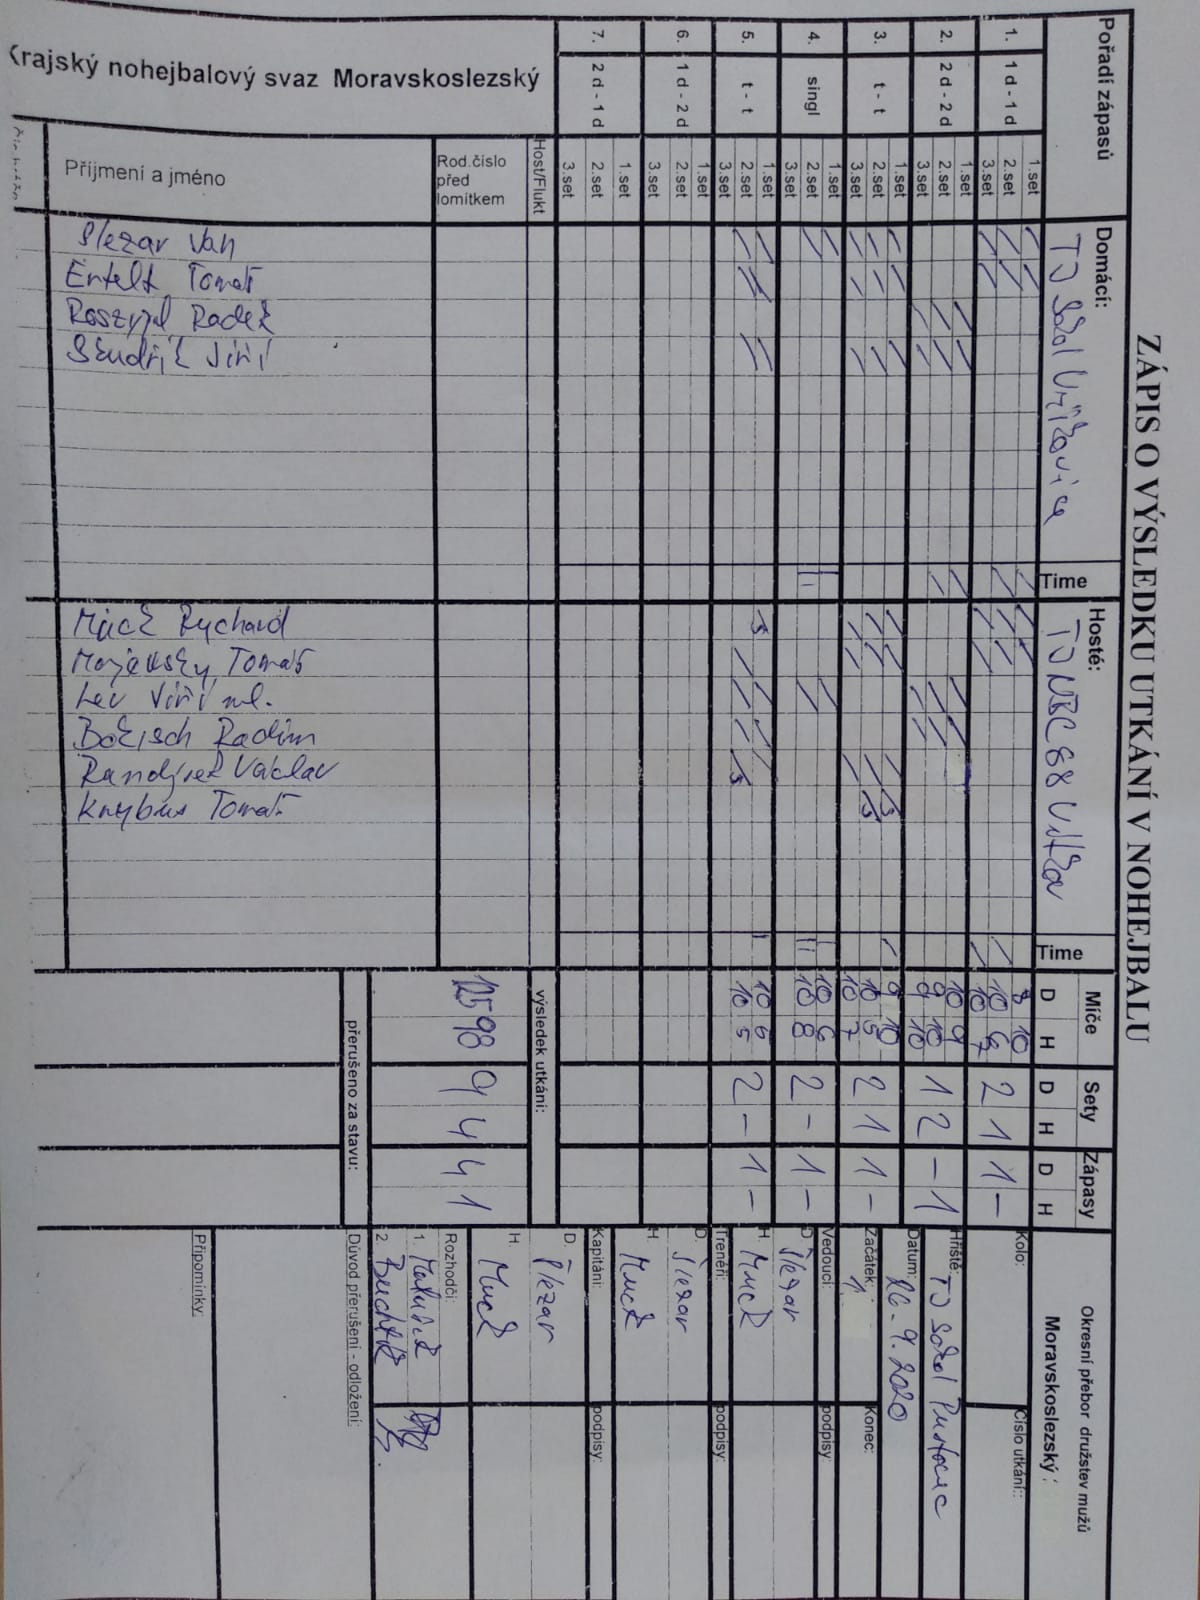 ZÁPIS O VÝSLEDKU UTKÁNÍ V NOHEJBALU
Pořadí zápasů
Domácí:
Time
Hosté:
Time
Míče
D H
Sety
D H
Zápasy
D H
Okresní přebor družstev mužů
Moravskoslezský :
Kolo:
Číslo utkání::
Hřiště: TJ Sokol
Datum: 26.9.2020
Začátek:
Konec:
Vedoucí:
podpisy:
D. Šlezar
H. Muck
Trenéři:
podpisy:
D. Šlezar
H. Muck
Kapitáni:
podpisy:
D. Šlezar
H. Muck
Rozhodčí:
1.
2.
Důvod přerušení - odložení:
Připomínky:
1. 1 d - 1 d 1.set 8 10
2.set 10 6 2 1 1 -
3.set 10 7
2. 2 d - 2 d 1.set 10 9
2.set 9 10 1 2 - 1
3.set 9 10
3. t - t 1.set 9 10
2.set 10 5 2 1 1 -
3.set 10 7
4. singl 1.set 10 6
2.set 10 8 2 - 1 -
3.set
5. t - t 1.set 10 6
2.set 10 5 2 - 1 -
3.set
6. 1 d - 2 d 1.set
2.set
3.set
7. 2 d - 1 d 1.set
2.set
3.set
výsledek utkání:
125 98 9 4 4 1
přerušeno za stavu:
Krajský nohejbalový svaz Moravskoslezský
Host/Flukt
Rod.číslo před lomítkem
Příjmení a jméno
Šlezar Jan
Tomáš
Radek
Jiří
Rychard
Tomáš
Lev Jiří ml.
Radim
Václav
Tomáš